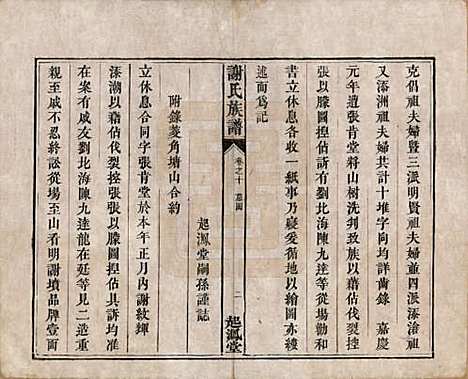 克倡祖夫婦暨三派明賢祖夫婦董四派添滄祖
又添洲祖夫婦共計十堆字向均詳齒錄　嘉慶
元年遇張肯堂將山樹洗判致族以藉估伐裂控
張以朦圖揑估訴有劉北海陳九達等從場勸和
書立休息各收一紙事乃寢爰循地以繪圖亦綾
述而爲記
起鳳堂嗣孫謹誌
謝氏族譜
卷之十　墓圖
二
起鳳堂
附錄菱角塘山合約
立休息合同字張肯堂於本年正月內謝紋輝
添潮以藉估伐裂控張張以朦圖揑估具訴均准
在案有戚友劉北海陳九達龍在廷等見二造重
親至戚不忍終訟從場至山看明謝墳品牌壹面